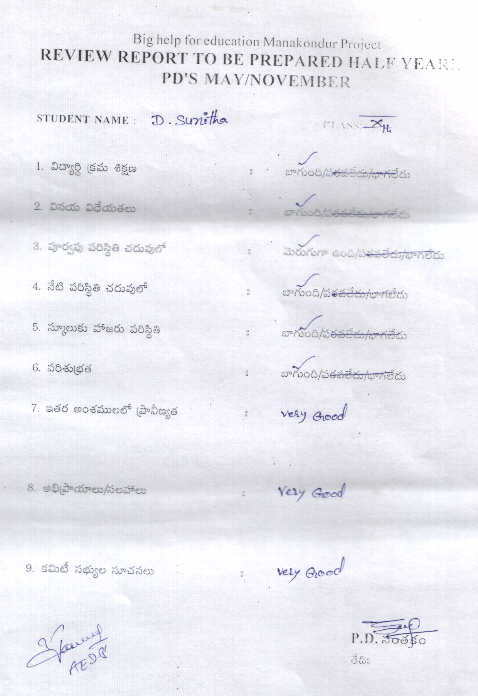 Big help for education Manakondur Project
REVIEW REPORT TO BE PREPARED HALF YEARL
PD'S MAY/NOVEMBER
STUDENT NAME : D. Sunitha CLASS: Xth
1. విద్యార్థి క్రమ శిక్షణ : బాగుంది/పరవలేదు/బాగలేదు
2. వినయ విధేయతలు : బాగుంది/పరవలేదు/బాగలేదు
3. పూర్వపు పరిస్థితి చదువులో : మెరుగుగా ఉంది/పరవలేదు/బాగలేదు
4. నేటి పరిస్థితి చదువులో : బాగుంది/పరవలేదు/బాగలేదు
5. స్కూలుకు హాజరు పరిస్థితి : బాగుంది/పరవలేదు/బాగలేదు
6. పరిశుభ్రత : బాగుంది/పరవలేదు/బాగలేదు
7. ఇతర అంశములలో ప్రావీణ్యత : very Good
8. అభిప్రాయాలు/సలహాలు : Very Good
9. కమిటీ సభ్యుల సూచనలు : very Good
P.D. సంతకం
తేది: